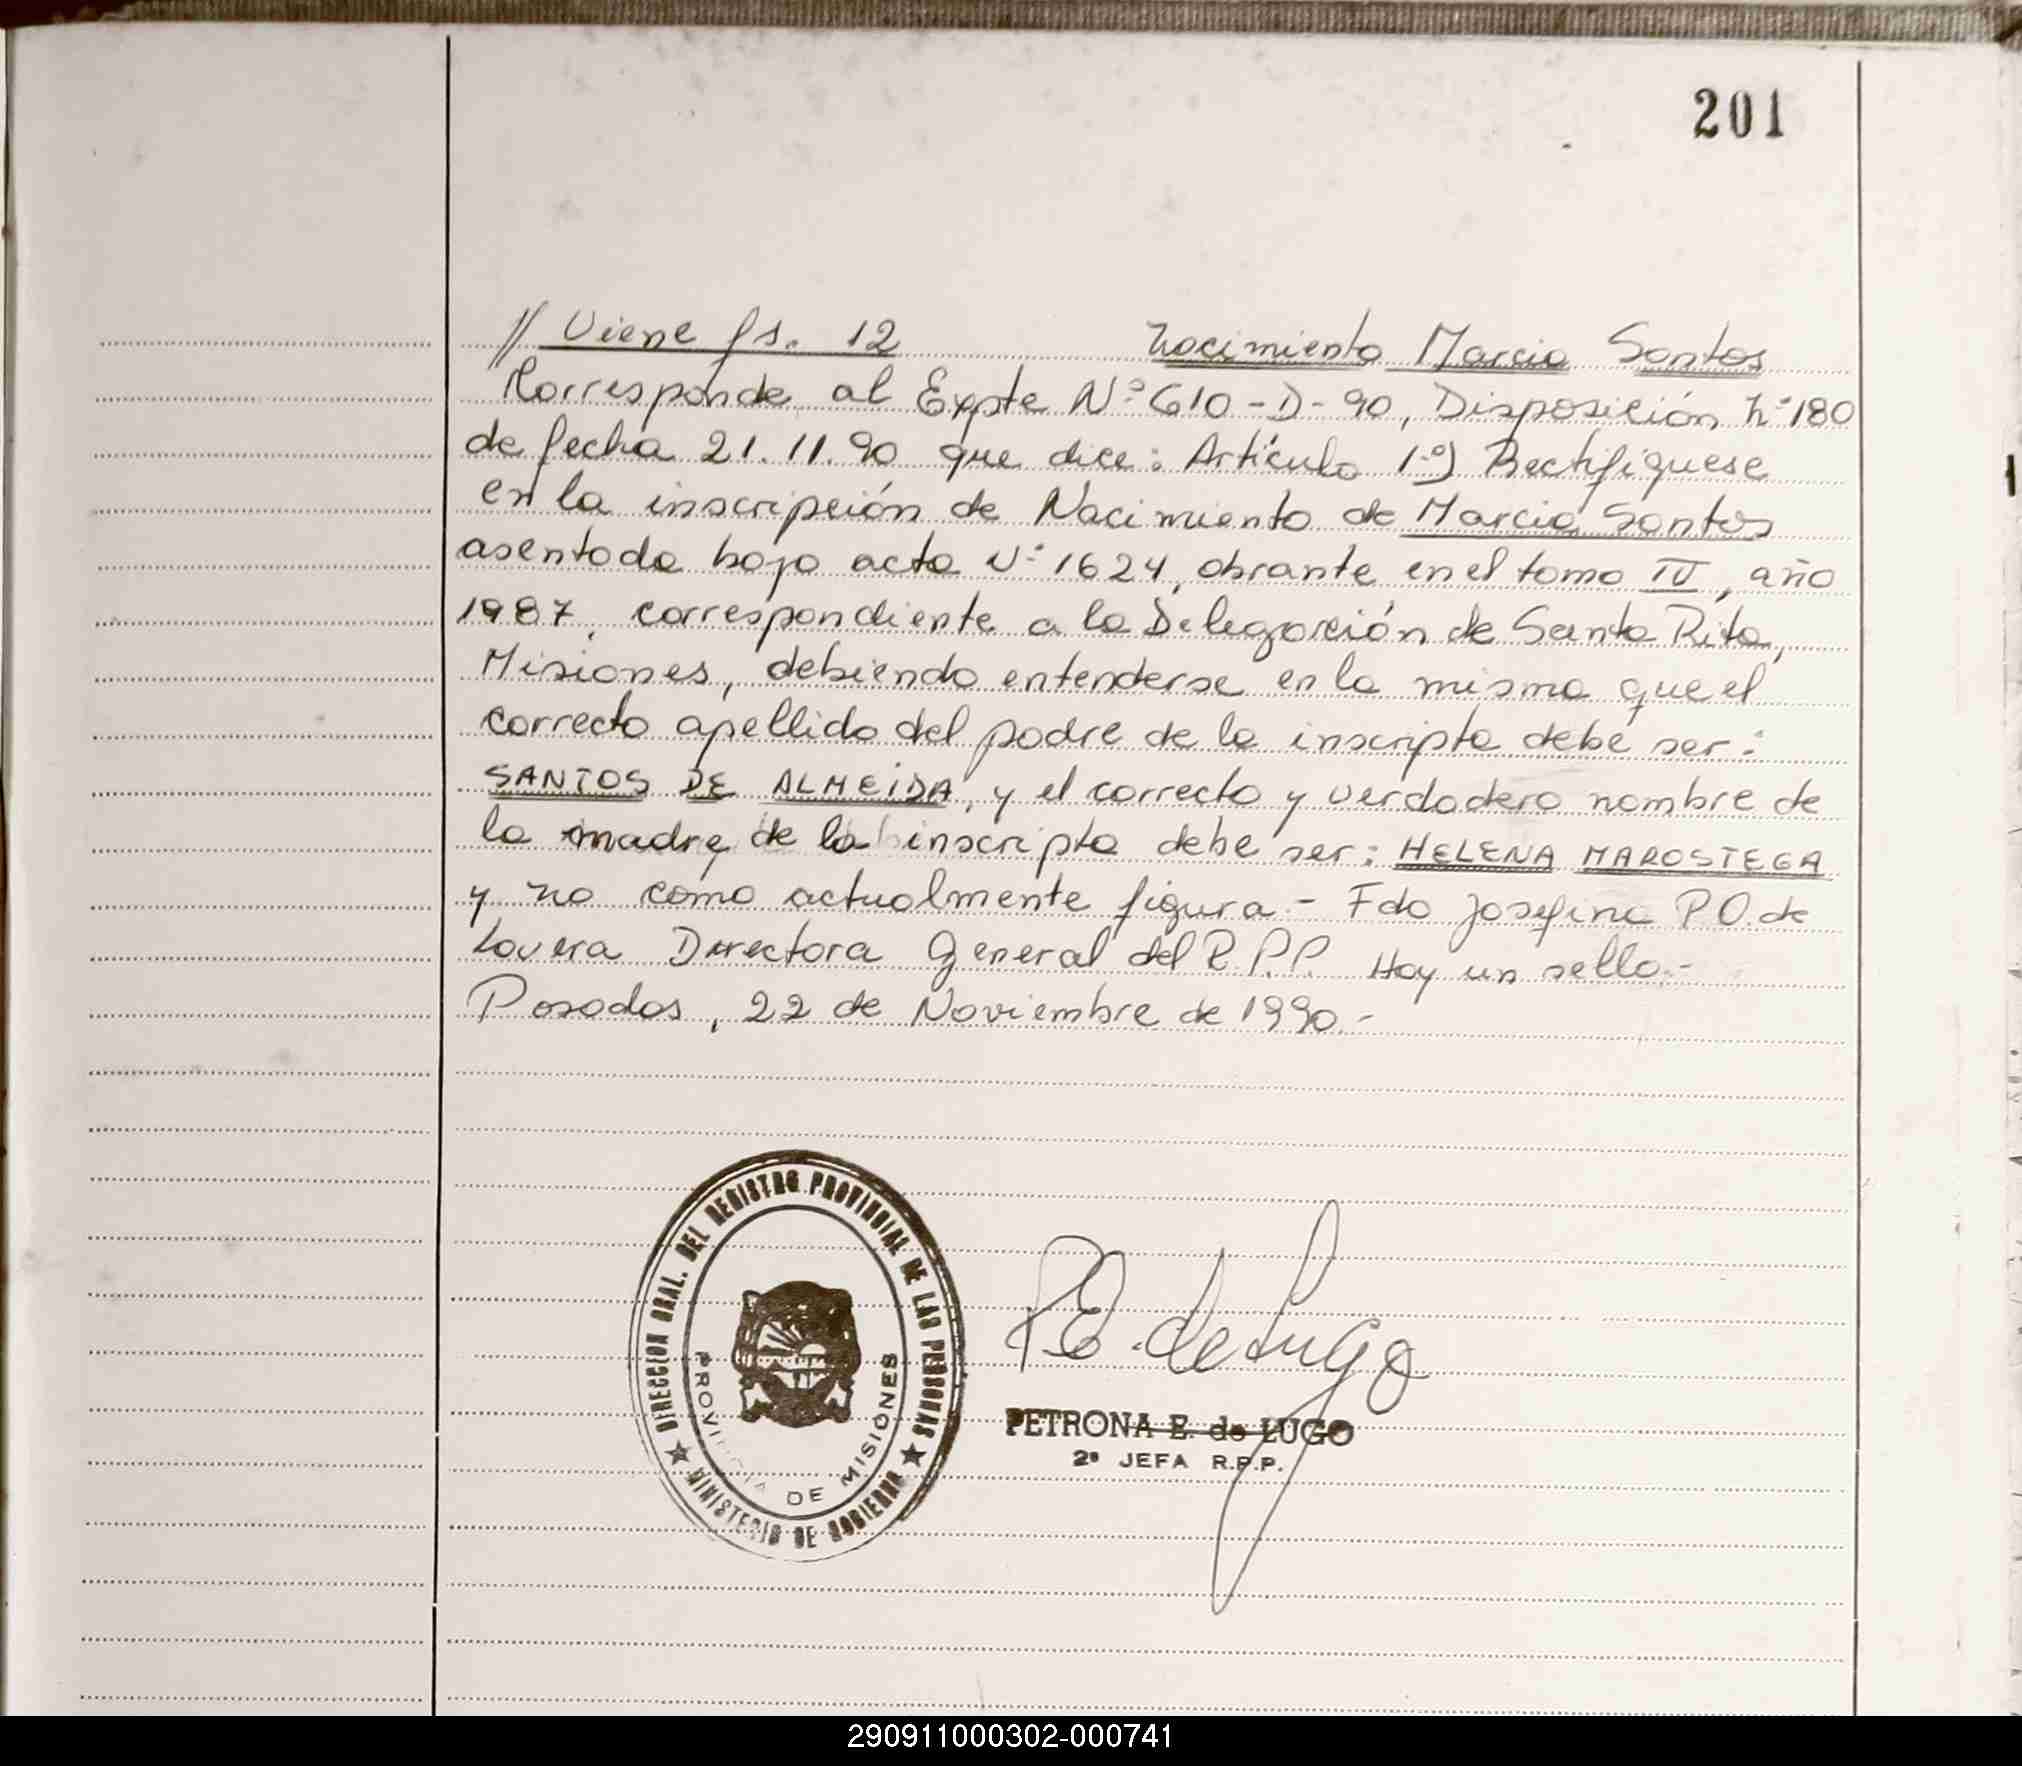 201
// Viene fs. 12 Nacimiento Marcia Santos
Corresponde al Expte Nº 610-D-90, Disposición Nº 180
de fecha 21.11.90 que dice: Artículo 1º) Rectifiquese
en la inscripción de Nacimiento de Marcia Santos
asentada bajo acta Nº 1624, obrante en el tomo IV, año
1987, correspondiente a la Delegación de Santa Rita,
Misiones, debiendo entenderse en la misma que el
correcto apellido del padre de la inscripta debe ser:
SANTOS DE ALMEIDA, y el correcto y verdadero nombre de
la madre de la inscripta debe ser: HELENA MAROSTEGA
y no como actualmente figura.- Fdo Josefina P.O. de
Lovera Directora General del R.P.P. Hay un sello.-
Posadas, 22 de Noviembre de 1990.-
DIRECCION GRAL. DEL REGISTRO PROVINCIAL DE LAS PERSONAS
PROVINCIA DE MISIONES
MINISTERIO DE GOBIERNO
P E. de Lugo
PETRONA E. de LUGO
2ª JEFA R.P.P.
290911000302-000741